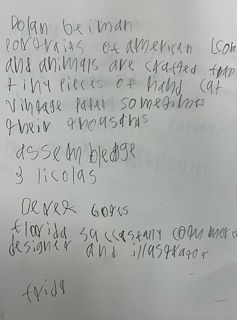 Dolan beiman
portraits of american icon
and animals are crafted from
tiny pieces of hand cat
vintage paper sometimes
their thousands
assemblege
3 licolas
Derek Gores
florida saccessfully commer
designer and illastrator
frida